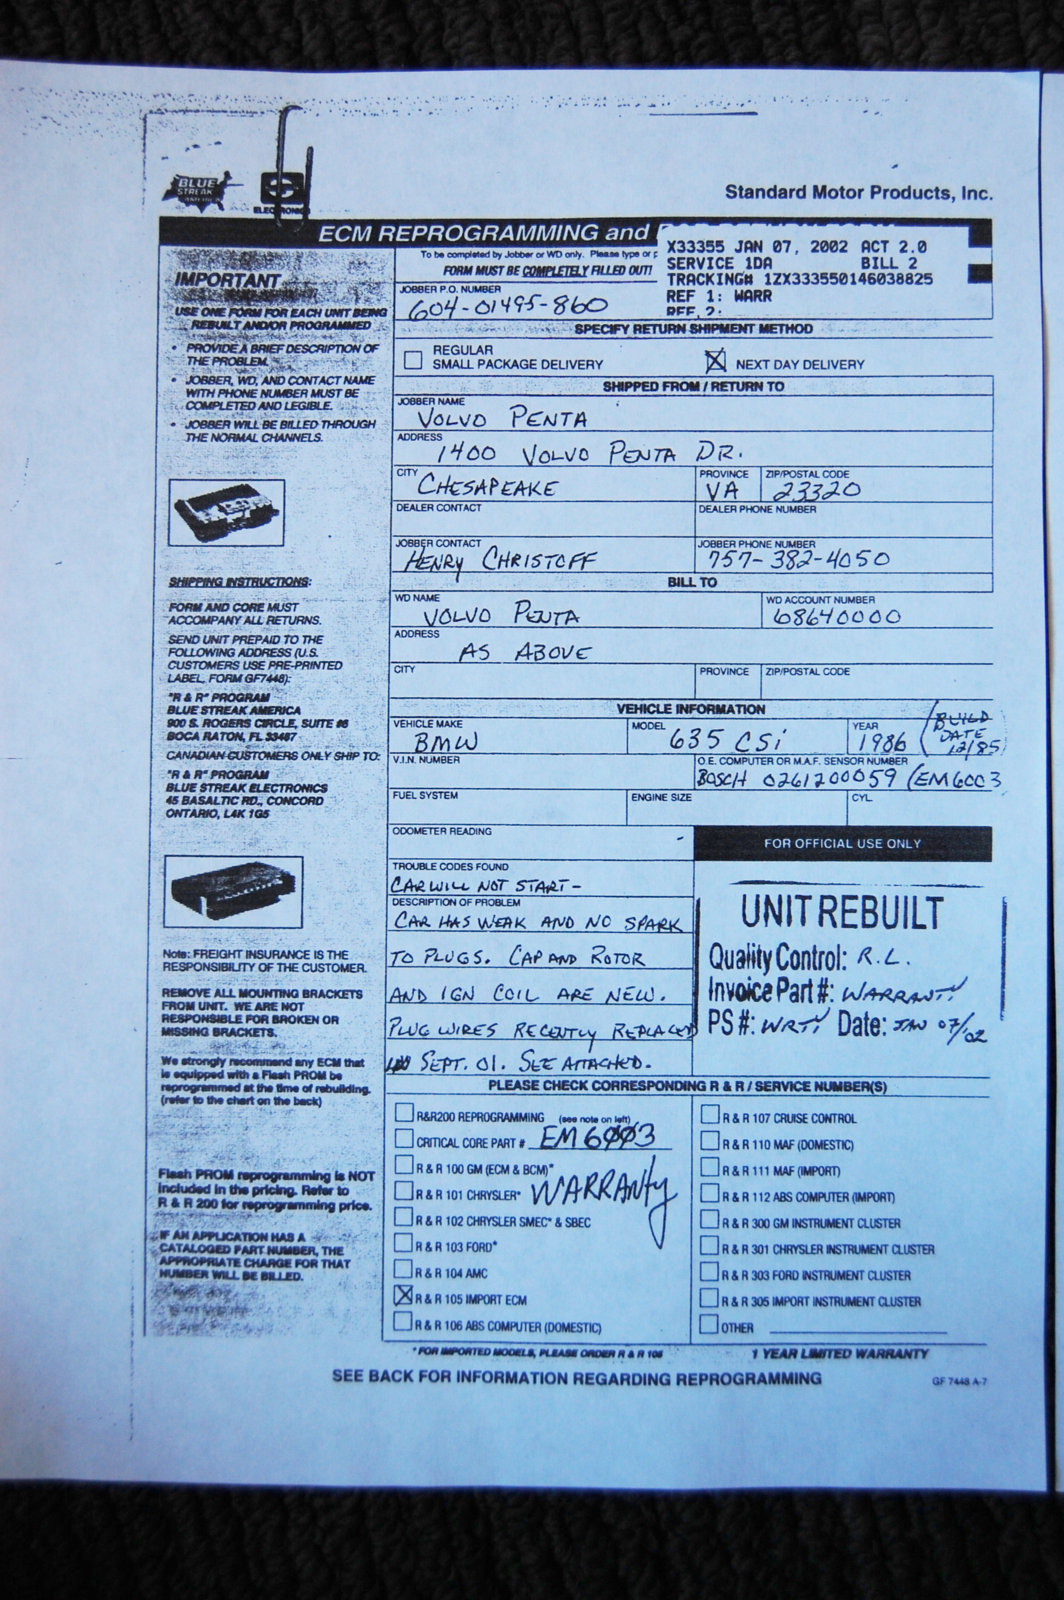 BLUE
STREAK
AMERICA
ELECTRONICS
Standard Motor Products, Inc.
ECM REPROGRAMMING and
To be completed by Jobber or WD only. Please type or p
FORM MUST BE COMPLETELY FILLED OUT!
X33355 JAN 07, 2002 ACT 2.0
SERVICE 1DA BILL 2
TRACKING# 1ZX333550146038825
REF 1: WARR
REF 2:
IMPORTANT
USE ONE FORM FOR EACH UNIT BEING
REBUILT AND/OR PROGRAMMED
• PROVIDE A BRIEF DESCRIPTION OF
THE PROBLEM.
• JOBBER, WD, AND CONTACT NAME
WITH PHONE NUMBER MUST BE
COMPLETED AND LEGIBLE.
• JOBBER WILL BE BILLED THROUGH
THE NORMAL CHANNELS.
SHIPPING INSTRUCTIONS:
FORM AND CORE MUST
ACCOMPANY ALL RETURNS.
SEND UNIT PREPAID TO THE
FOLLOWING ADDRESS (U.S.
CUSTOMERS USE PRE-PRINTED
LABEL, FORM GF7448):
"R & R" PROGRAM
BLUE STREAK AMERICA
900 S. ROGERS CIRCLE, SUITE #6
BOCA RATON, FL 33487
CANADIAN CUSTOMERS ONLY SHIP TO:
"R & R" PROGRAM
BLUE STREAK ELECTRONICS
45 BASALTIC RD., CONCORD
ONTARIO, L4K 1G5
Note: FREIGHT INSURANCE IS THE
RESPONSIBILITY OF THE CUSTOMER.
REMOVE ALL MOUNTING BRACKETS
FROM UNIT. WE ARE NOT
RESPONSIBLE FOR BROKEN OR
MISSING BRACKETS.
We strongly recommend any ECM that
is equipped with a Flash PROM be
reprogrammed at the time of rebuilding.
(refer to the chart on the back)
Flash PROM reprogramming is NOT
included in the pricing. Refer to
R & R 200 for reprogramming price.
IF AN APPLICATION HAS A
CATALOGED PART NUMBER, THE
APPROPRIATE CHARGE FOR THAT
NUMBER WILL BE BILLED.
JOBBER P.O. NUMBER
604-01495-860
SPECIFY RETURN SHIPMENT METHOD
REGULAR
SMALL PACKAGE DELIVERY
NEXT DAY DELIVERY
SHIPPED FROM / RETURN TO
JOBBER NAME
VOLVO PENTA
ADDRESS
1400 VOLVO PENTA DR.
CITY PROVINCE ZIP/POSTAL CODE
CHESAPEAKE VA 23320
DEALER CONTACT DEALER PHONE NUMBER
JOBBER CONTACT JOBBER PHONE NUMBER
HENRY CHRISTOFF 757-382-4050
BILL TO
WD NAME WD ACCOUNT NUMBER
VOLVO PENTA 68640000
ADDRESS
AS ABOVE
CITY PROVINCE ZIP/POSTAL CODE
VEHICLE INFORMATION
VEHICLE MAKE MODEL YEAR
BMW 635 CSi 1986 (BUILD
DATE
12/85)
V.I.N. NUMBER O.E. COMPUTER OR M.A.F. SENSOR NUMBER
BOSCH 0261200059 (EM6003
FUEL SYSTEM ENGINE SIZE CYL
ODOMETER READING
FOR OFFICIAL USE ONLY
TROUBLE CODES FOUND
CAR WILL NOT START-
DESCRIPTION OF PROBLEM
CAR HAS WEAK AND NO SPARK
TO PLUGS. CAP AND ROTOR
AND IGN COIL ARE NEW.
PLUG WIRES RECENTLY REPLACED
SEPT. 01. SEE ATTACHED.
UNIT REBUILT
Quality Control: R.L.
Invoice Part#: WARRANTY
PS#: WRTY Date: JAN 07/02
PLEASE CHECK CORRESPONDING R & R / SERVICE NUMBER(S)
R&R200 REPROGRAMMING (see note on left)
CRITICAL CORE PART # EM6003
R & R 100 GM (ECM & BCM)*
WARRANTY
R & R 101 CHRYSLER*
R & R 102 CHRYSLER SMEC* & SBEC
R & R 103 FORD*
R & R 104 AMC
R & R 105 IMPORT ECM
R & R 106 ABS COMPUTER (DOMESTIC)
R & R 107 CRUISE CONTROL
R & R 110 MAF (DOMESTIC)
R & R 111 MAF (IMPORT)
R & R 112 ABS COMPUTER (IMPORT)
R & R 300 GM INSTRUMENT CLUSTER
R & R 301 CHRYSLER INSTRUMENT CLUSTER
R & R 303 FORD INSTRUMENT CLUSTER
R & R 305 IMPORT INSTRUMENT CLUSTER
OTHER
* FOR IMPORTED MODELS, PLEASE ORDER R & R 105
1 YEAR LIMITED WARRANTY
SEE BACK FOR INFORMATION REGARDING REPROGRAMMING
GF 7448 A-7